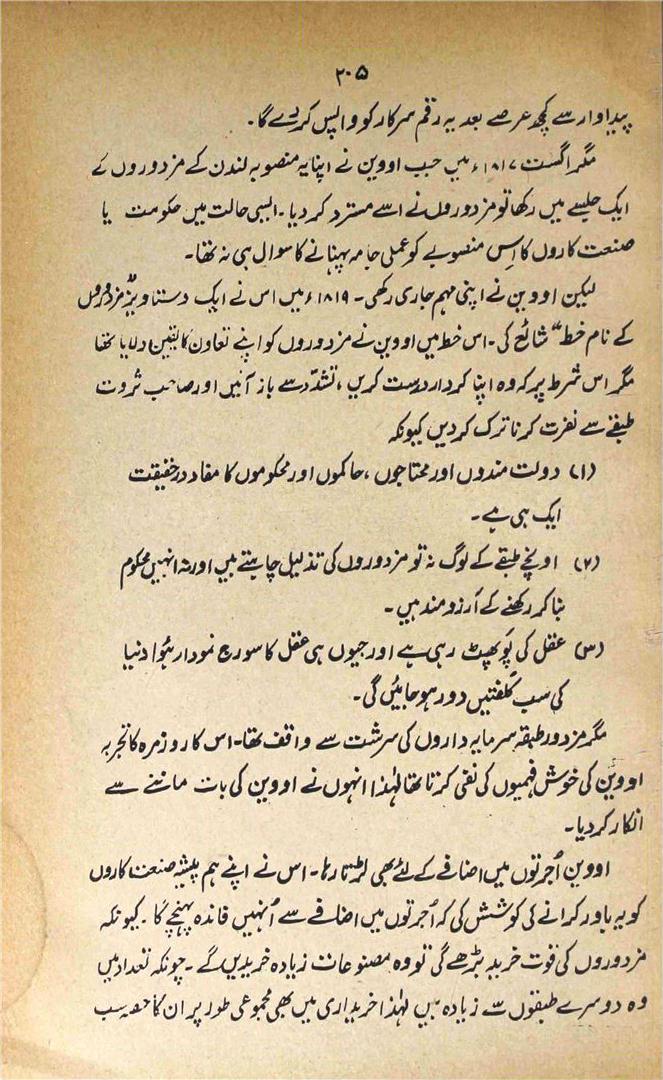 ۲۰۵
پیداوار سے کچھ عرصے بعد یہ رقم سرکار کو واپس کر دے گا۔
مگر اگست ۱۸۱۷ء میں جب اووین نے اپنا یہ منصوبہ لندن کے مزدوروں کے
ایک جلسے میں رکھا تو مزدوروں نے اسے مسترد کر دیا۔ ایسی حالت میں حکومت یا
صنعت کاروں کا اِس منصوبے کو عملی جامہ پہنانے کا سوال ہی نہ تھا۔
لیکن اووین نے اپنی مہم جاری رکھی۔ ۱۸۱۹ء میں اس نے ایک دستاویز "مزدوروں
کے نام خط" شائع کی۔ اس خط میں اووین نے مزدوروں کو اپنے تعاون کا یقین دلایا تھا
مگر اس شرط پر کہ وہ اپنا کردار درست کریں، تشدّد سے باز آئیں اور صاحب ثروت
طبقے سے نفرت کرنا ترک کر دیں کیونکہ
(۱) دولت مندوں اور محتاجوں، حاکموں اور محکوموں کا مفاد درحقیقت
ایک ہی ہے۔
(۲) اونچے طبقے کے لوگ نہ تو مزدوروں کی تذلیل چاہتے ہیں اور نہ انہیں محکوم
بنا کر رکھنے کے آرزو مند ہیں۔
(۳) عقل کی پَو پھٹ رہی ہے اور جیوں ہی عقل کا سورج نمودار ہُوا دنیا
کی سب کُلفتیں دور ہو جائیں گی۔
مگر مزدور طبقہ سرمایہ داروں کی سرشت سے واقف تھا۔ اس کا روزمرہ کا تجربہ
اووین کی خوش فہمیوں کی نفی کرتا تھا لہٰذا انہوں نے اووین کی بات ماننے سے
انکار کر دیا۔
اووین اُجرتوں میں اضافے کے لئے بھی لڑتا رہا۔ اس نے اپنے ہم پیشہ صنعت کاروں
کو یہ باور کرانے کی کوشش کی کہ اُجرتوں میں اضافے سے اُنہیں فائدہ پہنچے گا۔ کیونکہ
مزدوروں کی قوت خرید بڑھے گی تو وہ مصنوعات زیادہ خریدیں گے۔ چونکہ تعداد میں
وہ دوسرے طبقوں سے زیادہ ہیں لہٰذا خریداری میں بھی مجموعی طور پر ان کا حصہ سب